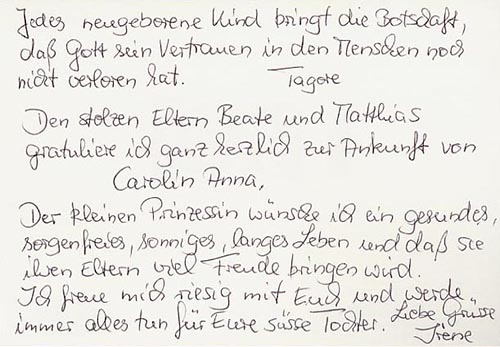 Jedes neugeborene Kind bringt die Botschaft,
daß Gott sein Vertrauen in den Menschen noch
nicht verloren hat.
Tagore
Den stolzen Eltern Beate und Matthias
gratuliere ich ganz herzlich zur Ankunft von
Carolin Anna,
Der kleinen Prinzessin wünsche ich ein gesundes,
sorgenfreies, sonniges, langes Leben und daß sie
ihren Eltern viel Freude bringen wird.
Ich freue mich riesig mit Euch und werde
immer alles tun für Eure süsse Tochter.
Liebe Grüsse
Irene